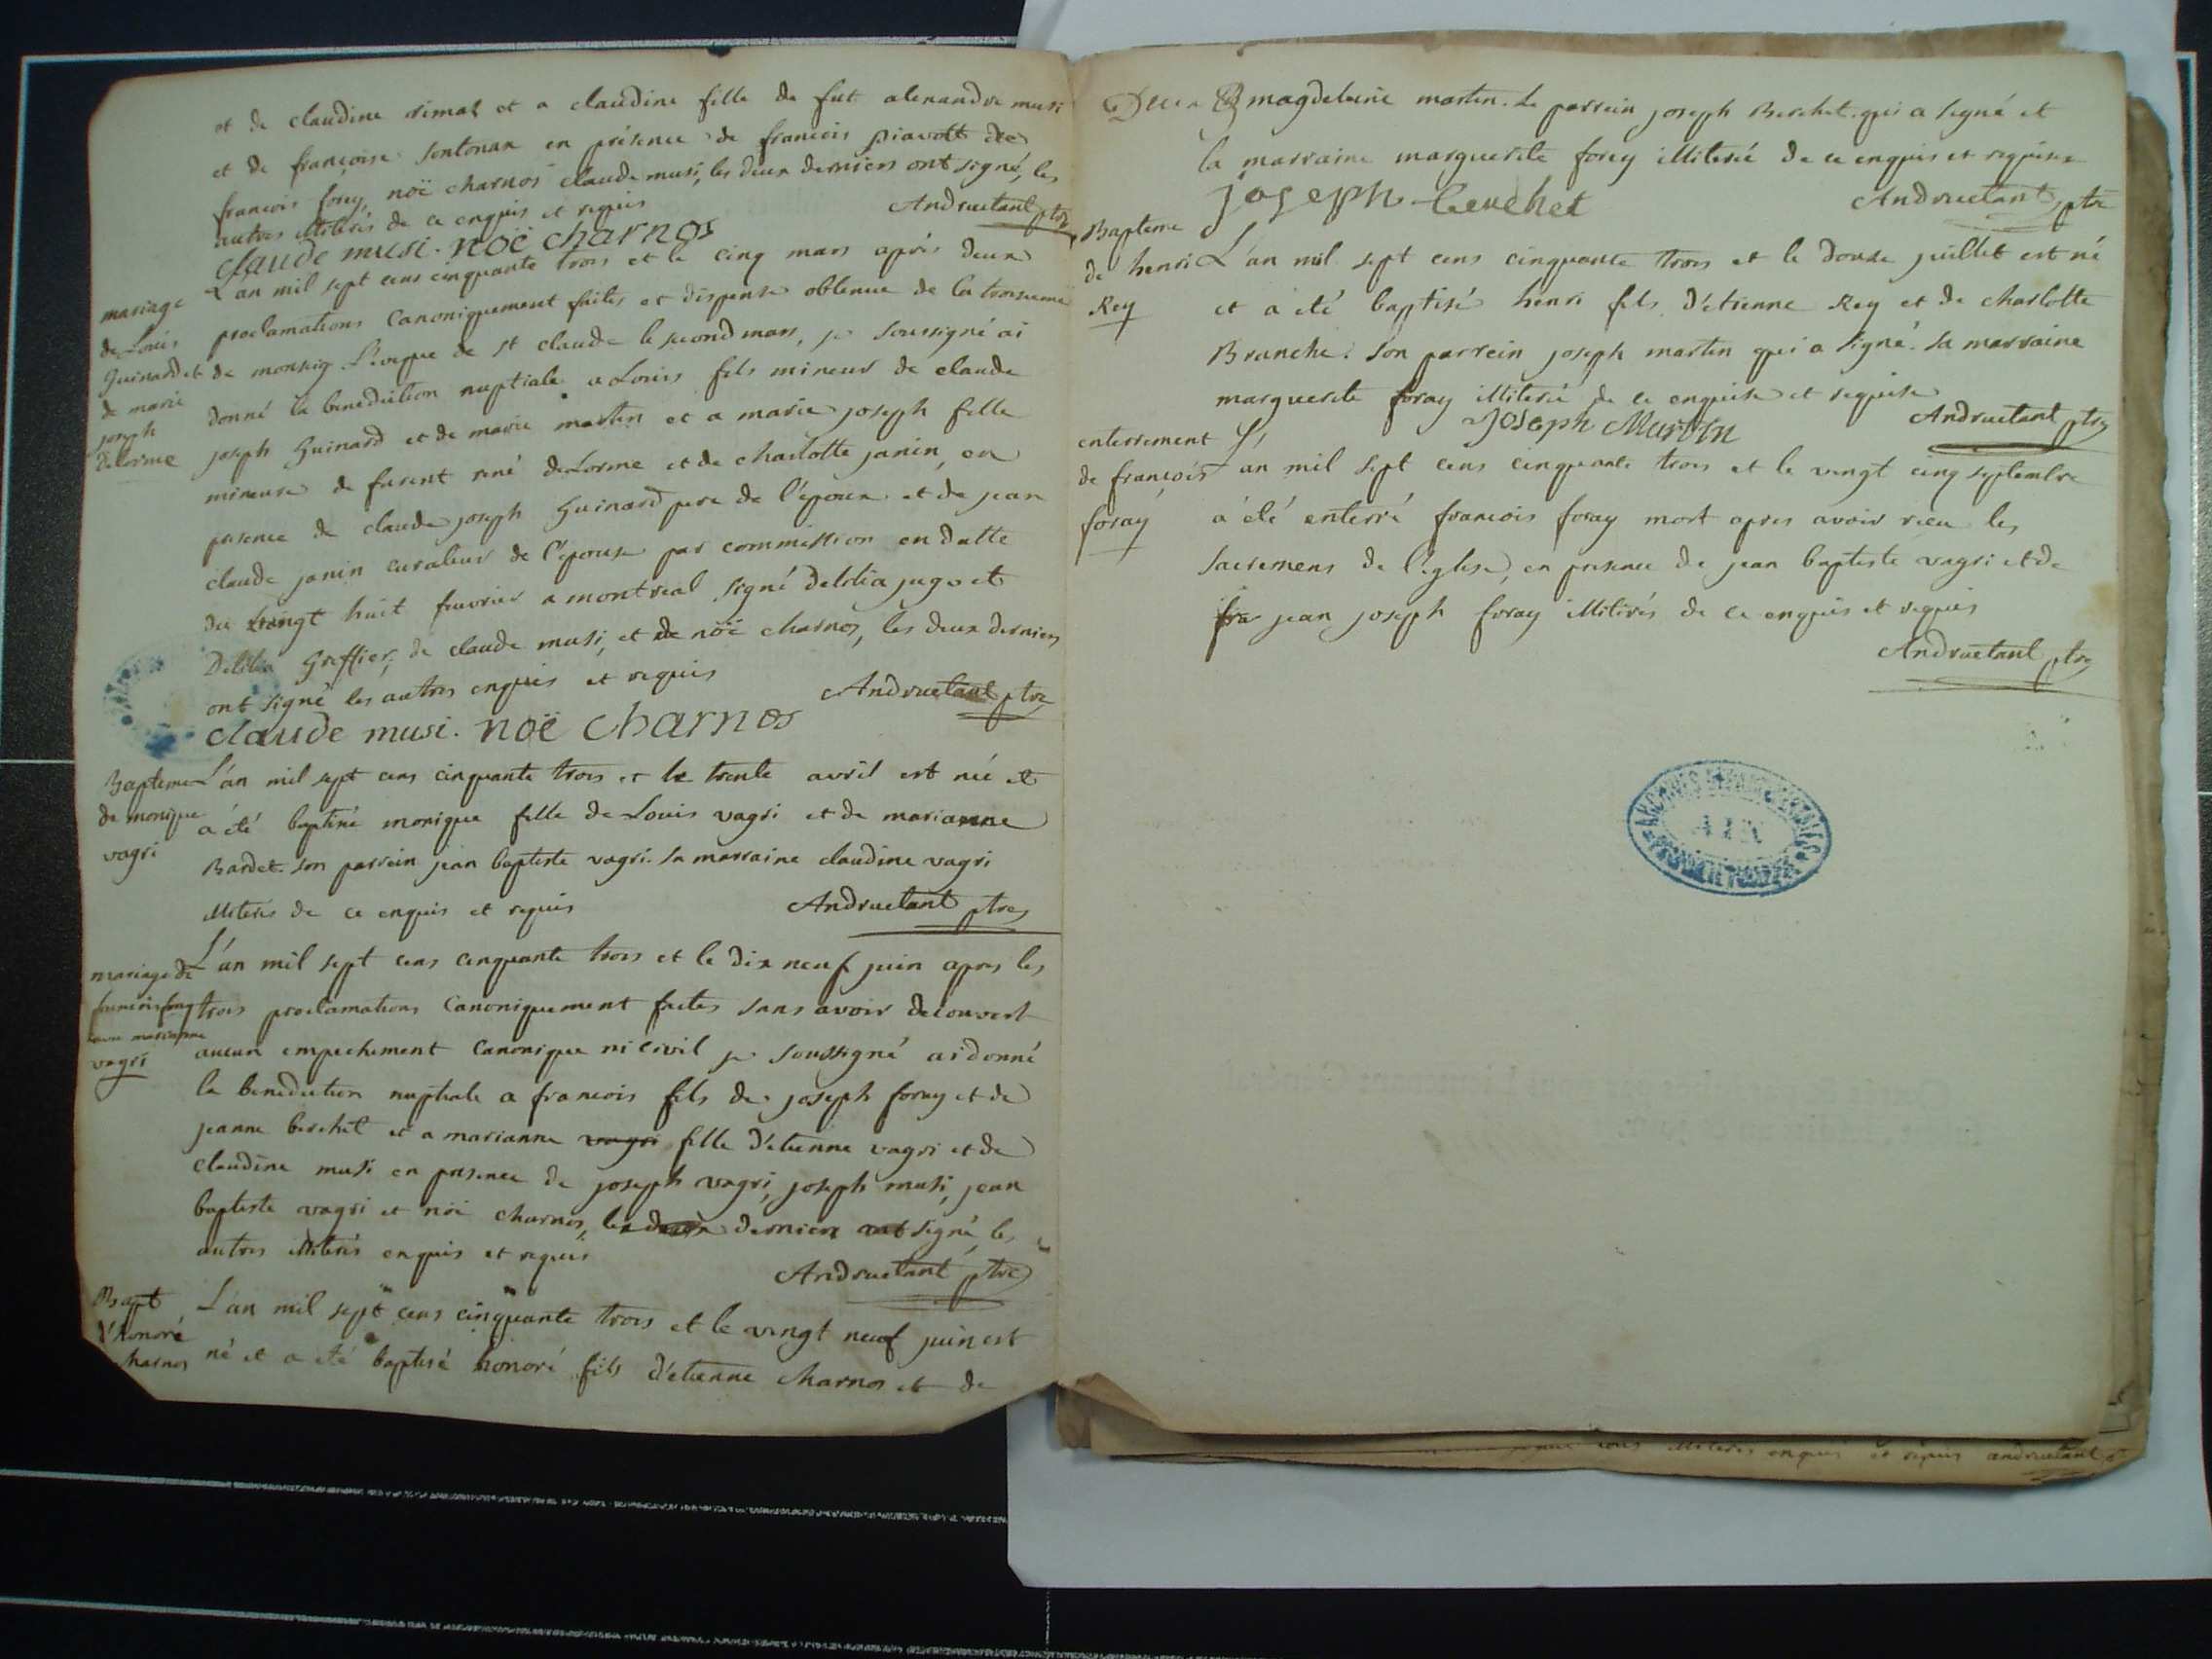 et de claudine rimal et a claudine fille de fut alexandre musi
et de françoise sontonax en présence de francois piavott de
francois foray, noë charnos claude musi, les deux derniers ont signé, les
autres illiterés de ce enquis et requis
Andruetant ptre
claude musi. noë charnos
mariage
de Louis
Guinard et
de marie
joseph
delorme
L'an mil sept cens cinquante trois et le cinq mars après deux
proclamations canoniquement faites et dispense obtenue de la troisieme
de monseig. L'eveque de st claude le second mars, je soussigné ai
donné la benediction nuptiale a Louis fils mineur de claude
joseph Guinard et de marie martin et a marie joseph fille
mineure de furent rené deLorme et de charlotte janin, en
presence de claude joseph Guinard pere de l'epoux et de jean
claude janin curateur de l'epouse par commission en datte
du vingt huit fevrier a montreal signé delilia juge et
Delilia Greffier, de claude musi, et de noë charnos, les deux derniers
ont signé les autres enquis et requis
Andruetant ptre
claude musi. noë charnos
Bapteme
de monique
vagri
L'an mil sept cens cinquante trois et le trente avril est née et
a été baptisé monique fille de Louis vagri et de marianne
Bardet. son parrein jean baptiste vagri. sa marraine claudine vagri
illiterés de ce enquis et requis
Andruetant ptre
mariage de
francois foray
avec marianne
vagri
L'an mil sept cens cinquante trois et le dix neuf juin apres les
trois proclamations canoniquement faites sans avoir decouvert
aucun empechement canonique ni civil je soussigné ai donné
la benediction nuptiale a francois fils de joseph foray et de
jeanne berchet et a marianne vagri fille d'etienne vagri et de
claudine musi en presence de joseph vagri, joseph musi, jean
baptiste vagri et noë charnos, le dernier signé, les
autres illiterés enquis et requis
Andruetant ptre
Bapt
d'honoré
charnos
L'an mil sept cens cinquante trois et le vingt neuf juin est
né et a été baptisé honoré fils d'etienne charnos et de
magdeleine martin. Le parrein joseph Berchet. qui a signé et
la marraine marguerite foray illiterée de ce enquis et requise
joseph berchet
Andruetant ptre
Bapteme
de henri
Rey
L'an mil sept cens cinquante trois et le douze juillet est né
et a été baptisé henri fils d'etienne Rey et de charlotte
Brunche. son parrein joseph martin qui a signé. sa marraine
marguerite foray illiterée de ce enquise et requise
Joseph Martin
Andruetant ptre
enterrement
de françois
foray
L'an mil sept cens cinquante trois et le vingt cinq septembre
a été enterré francois foray mort apres avoir recu les
sacremens de l'eglise, en presence de jean baptiste vagri et de
fra jean joseph foray illiterés de ce enquis et requis
Andruetant ptre
ARCHIVES DEPARTEMENTALES
AIN
illiterés enquis et requis andruetant